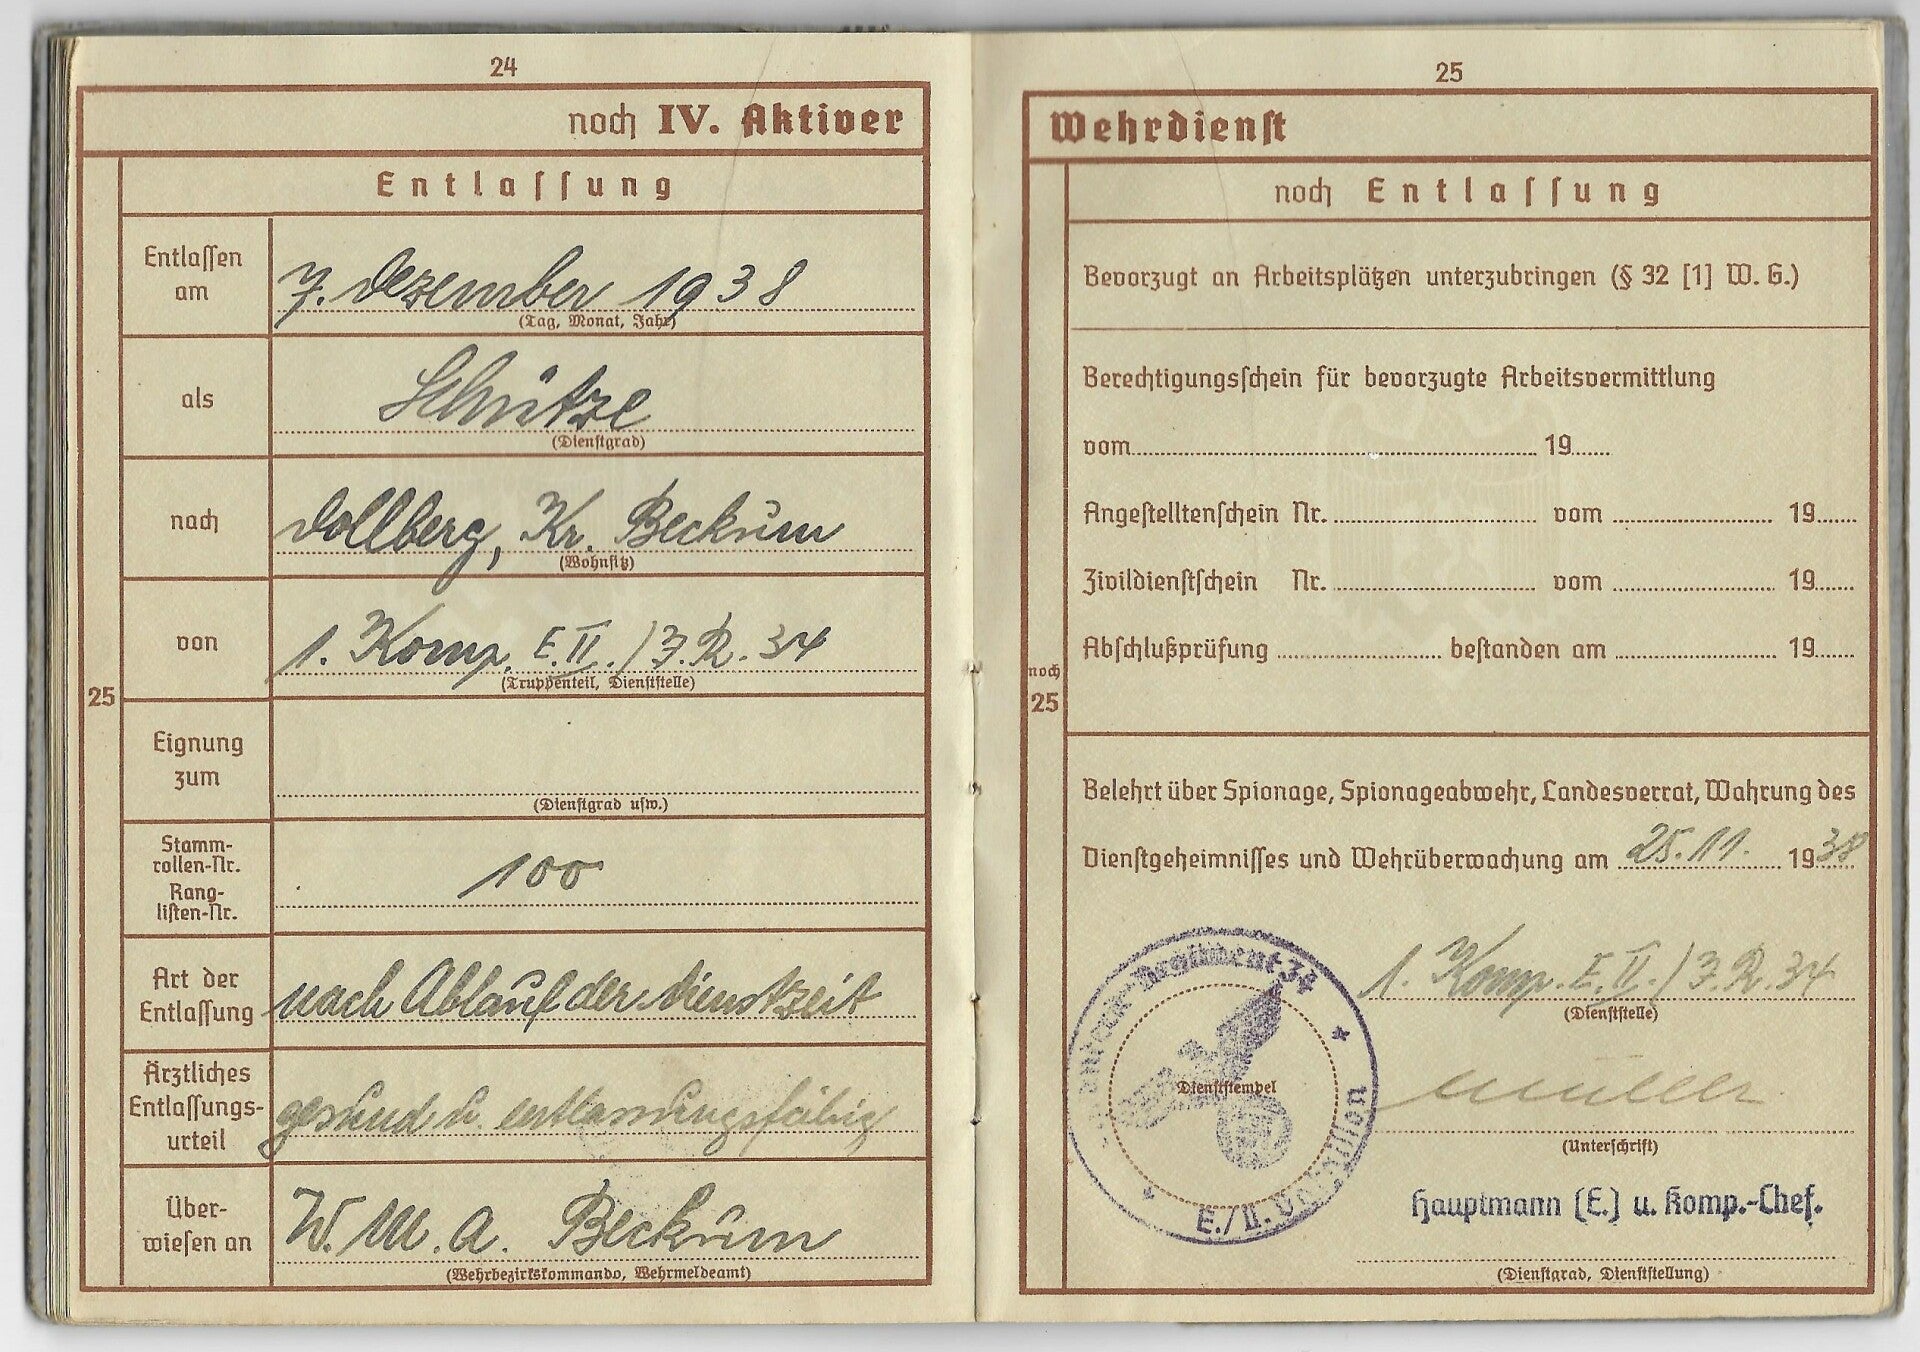 24
noch IV. Aktiver
Entlassung
Entlassen am
7. Dezember 1938
(Tag, Monat, Jahr)
als
Schütze
(Dienstgrad)
nach
Dollberg, Kr. Beckum
(Wohnsitz)
von
1. Komp. E.II./J.R. 34
(Truppenteil, Dienststelle)
25
Eignung zum
(Dienstgrad usw.)
Stamm-
rollen-Nr.
Rang-
listen-Nr.
100
Art der
Entlassung
nach Ablauf der Dienstzeit
Ärztliches
Entlassungs-
urteil
gesund u. entlassungsfähig
Über-
wiesen an
W. M. A. Beckum
(Wehrbezirkskommando, Wehrmeldeamt)
25
Wehrdienst
noch Entlassung
Bevorzugt an Arbeitsplätzen unterzubringen (§ 32 [1] W. G.)
Berechtigungsschein für bevorzugte Arbeitsvermittlung
vom 19
Angestelltenschein Nr. vom 19
Zivildienstschein Nr. vom 19
Abschlußprüfung bestanden am 19
noch
25
Belehrt über Spionage, Spionageabwehr, Landesverrat, Wahrung des
Dienstgeheimnisses und Wehrüberwachung am 25.11. 1938
1. Komp. E.II./J.R. 34
(Dienststelle)
Regiment 34
Dienststempel
E./II. Bataillon
Müller
(Unterschrift)
Hauptmann (E.) u. Komp.-Chef.
(Dienstgrad, Dienststellung)